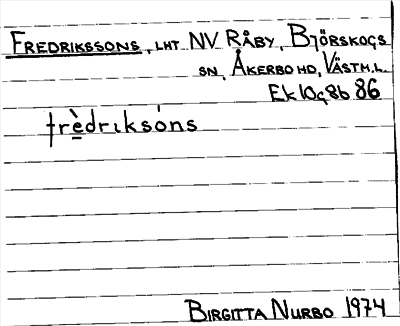 FREDRIKSSONS, LHT NV RÅBY, BJÖRSKOGS
SN, ÅKERBO HD, VÄSTM.L.
Ek 10g8b 86
frèdriksóns
BIRGITTA NURBO 1974